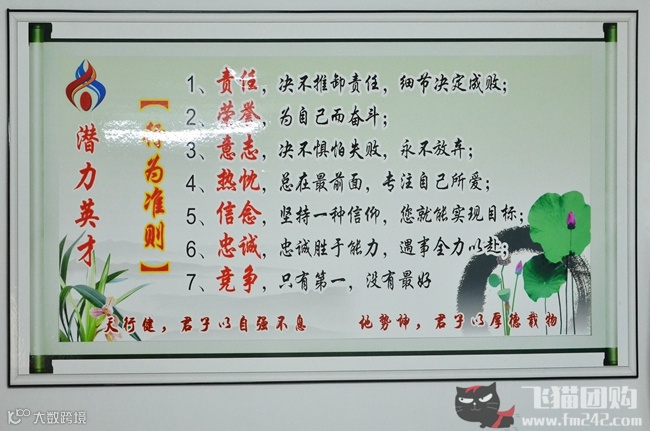 潜力英才
【行为准则】
1、责任，决不推卸责任，细节决定成败；
2、荣誉，为自己而奋斗；
3、意志，决不惧怕失败，永不放弃；
4、热忱，总在最前面，专注自己所爱；
5、信念，坚持一种信仰，您就能实现目标；
6、忠诚，忠诚胜于能力，遇事全力以赴；
7、竞争，只有第一，没有最好
天行健，君子以自强不息 地势坤，君子以厚德载物
大数跨境
飞猫团购
www.fm242.com